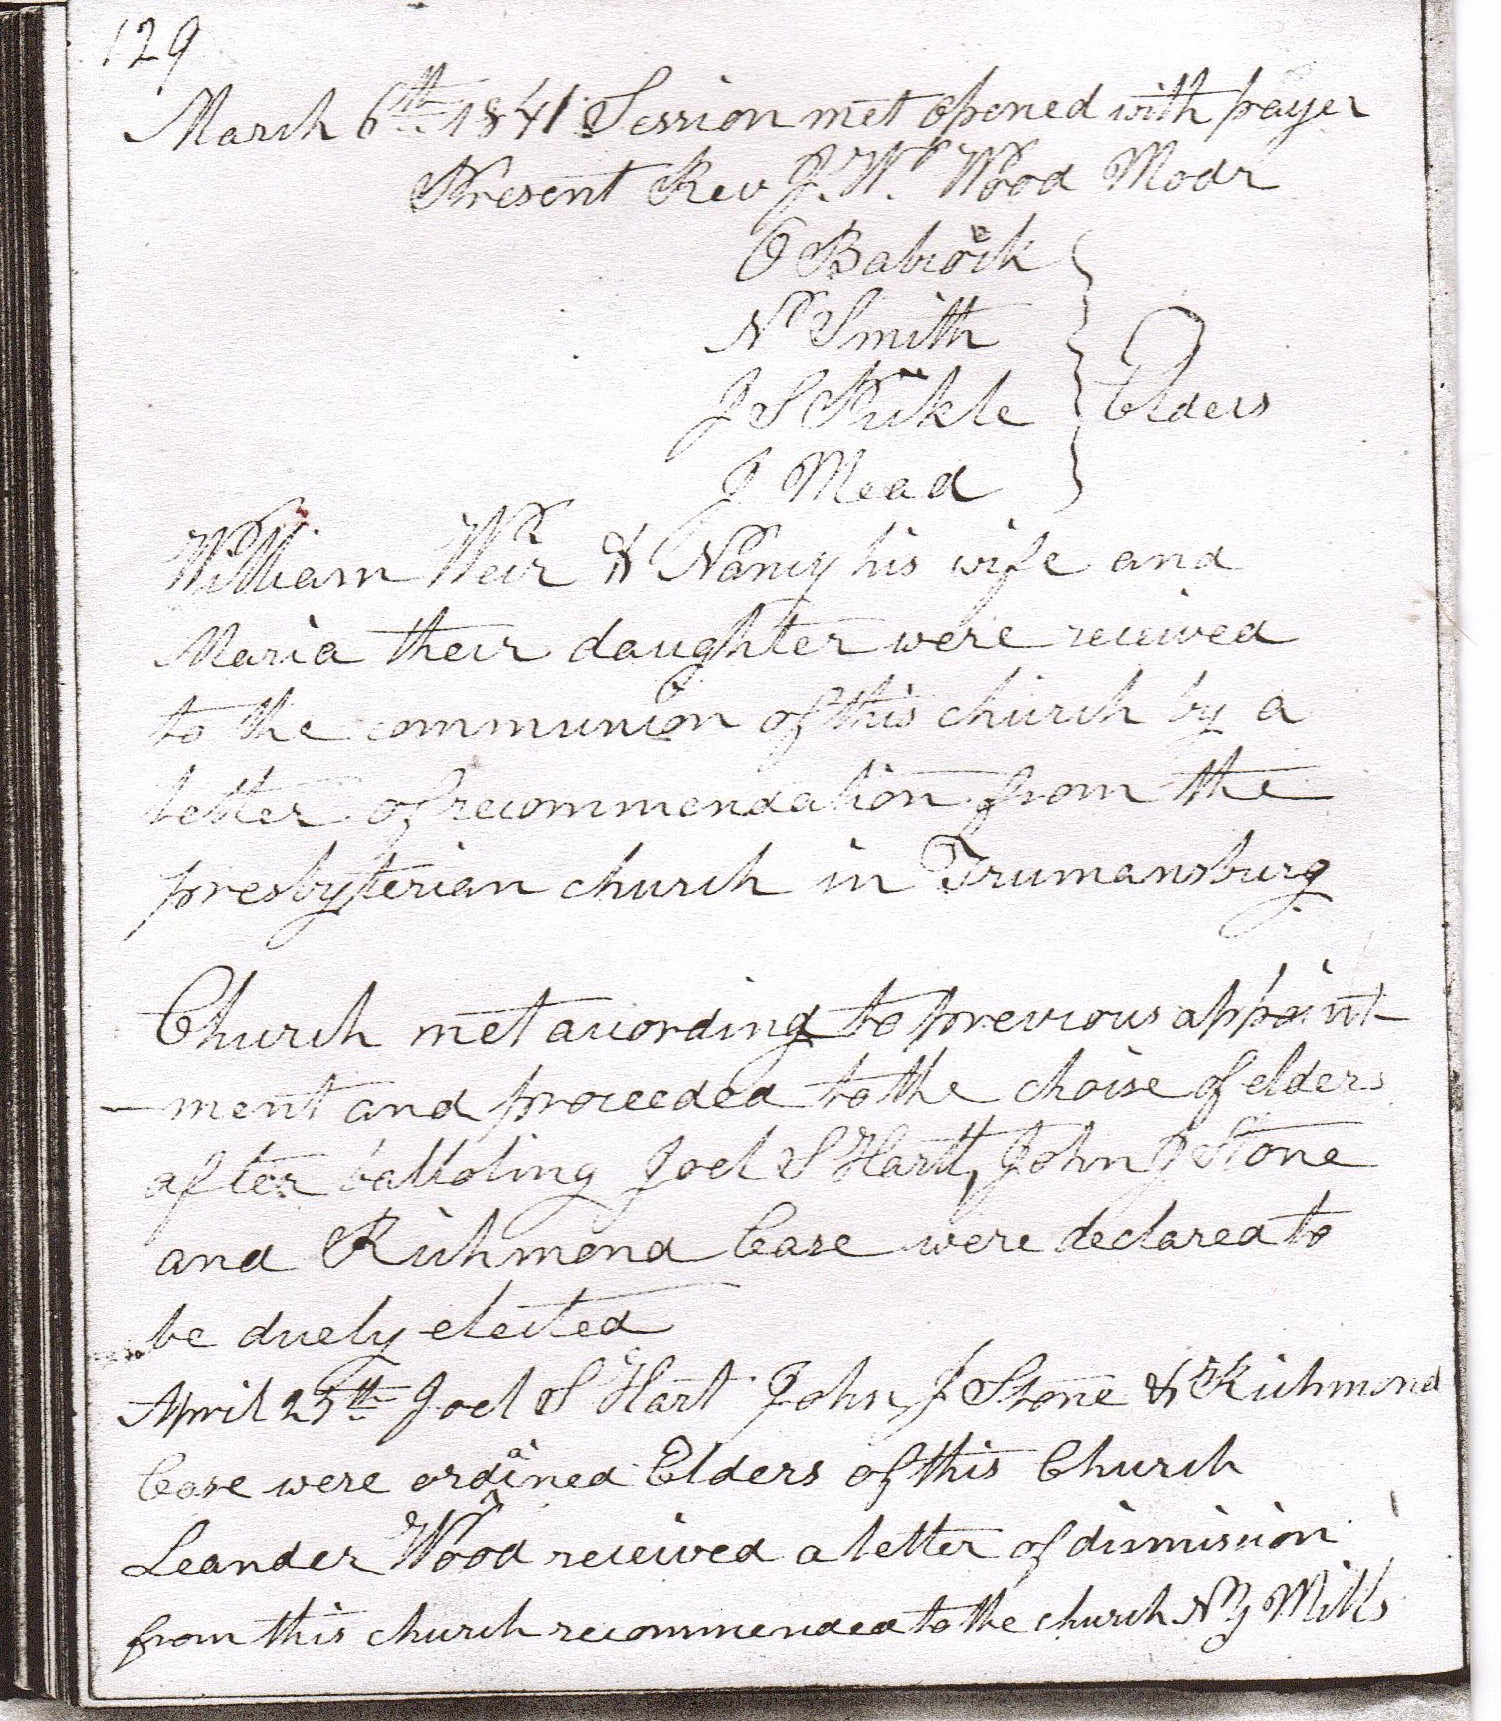 129
March 6th 1841 Session met opened with prayer
Present Rev J. W. Wood Modr
O Babcock
N Smith
J S Pickle
Elders
J Mead
William Weir & Nancy his wife and
Maria their daughter were received
to the communion of this church by a
letter of recommendation from the
presbyterian church in Trumansburg
Church met according to previous appoint
-ment and proceeded to the choise of elders
after balloting Joel S Hart, John J Stone
and Richmond Case were declared to
be duely elected
April 25th Joel S Hart John J Stone & Richmond
Case were ordained Elders of this Church
Leander Wood received a letter of dismission
from this church recommended to the church NY Mills